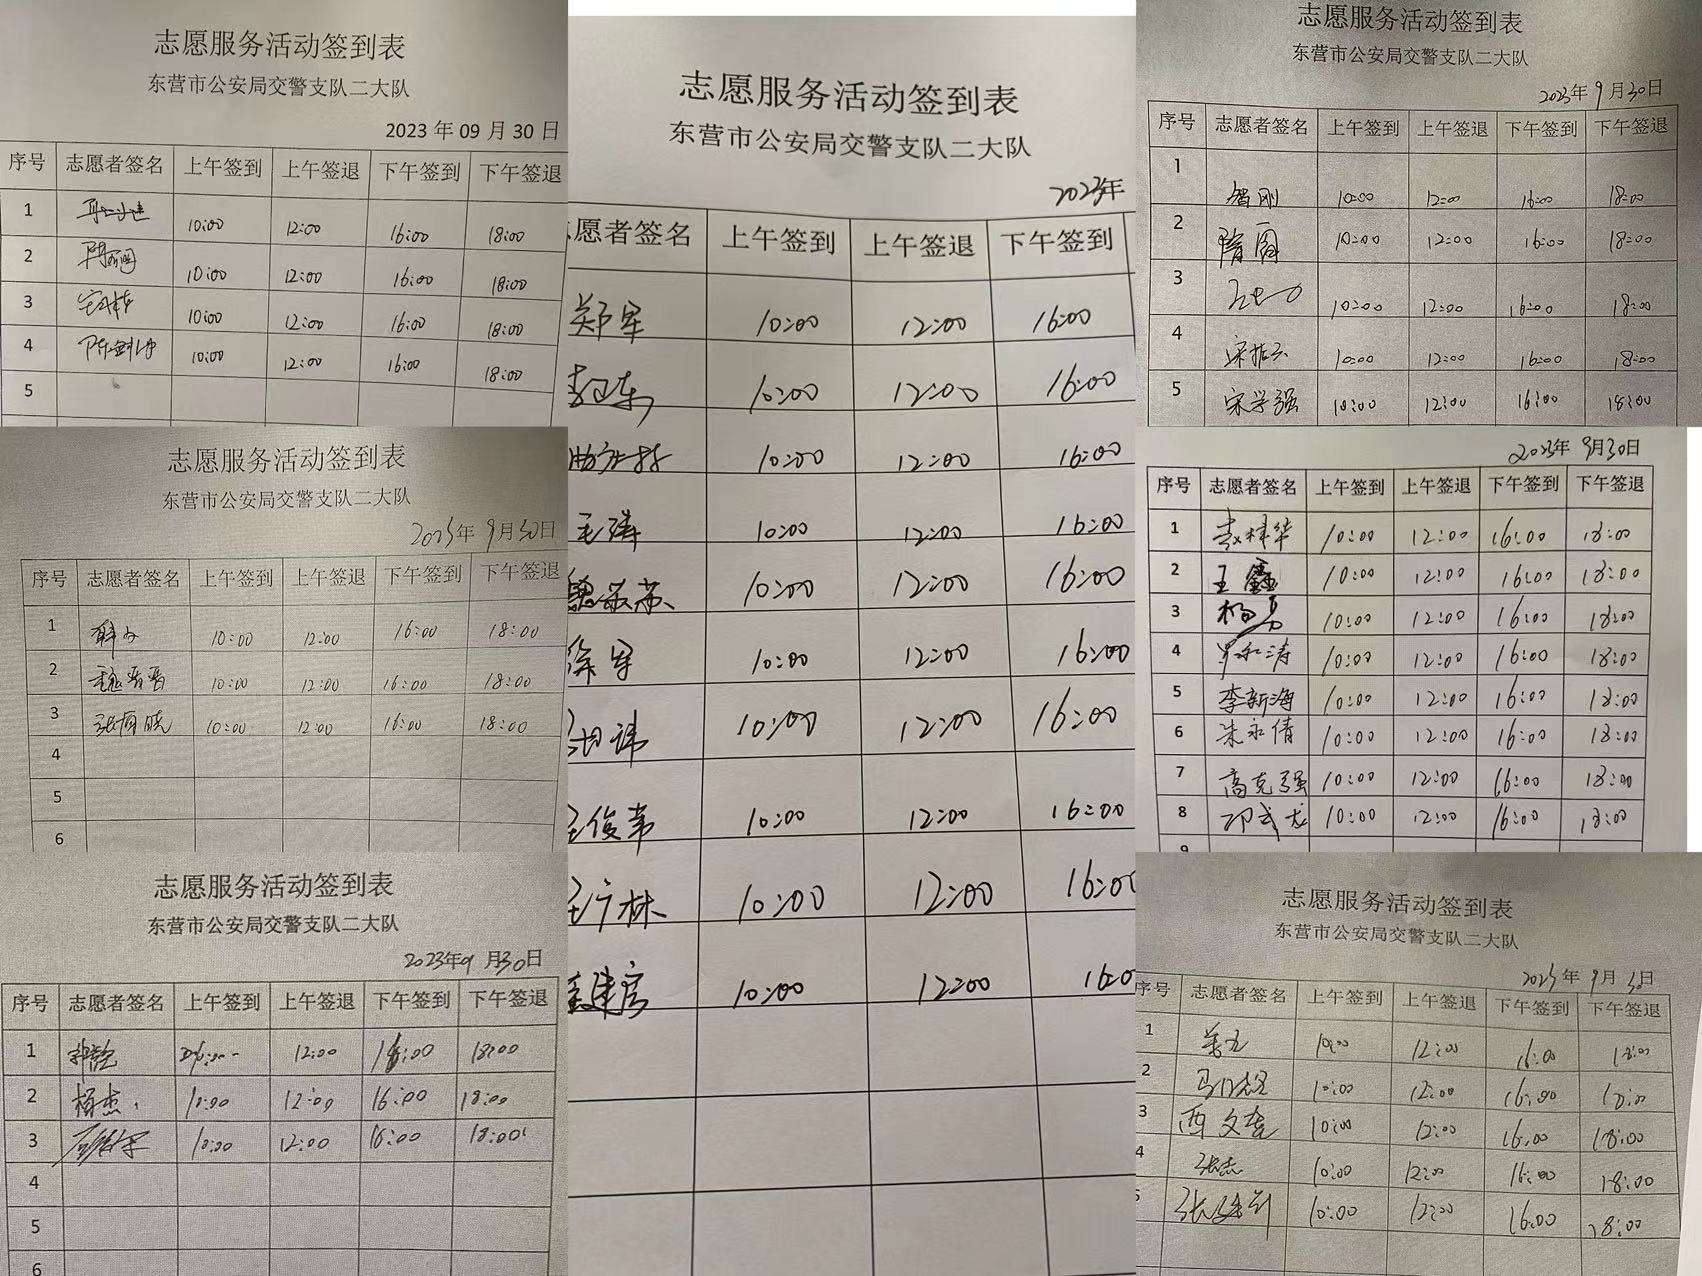 志愿服务活动签到表
东营市公安局交警支队二大队
2023 年 09 月 30 日
序号 志愿者签名 上午签到 上午签退 下午签到 下午签退
1 10:00 12:00 16:00 18:00
2 10:00 12:00 16:00 18:00
3 10:00 12:00 16:00 18:00
4 10:00 12:00 16:00 18:00
5
志愿服务活动签到表
东营市公安局交警支队二大队
2023年 9月30日
序号 志愿者签名 上午签到 上午签退 下午签到 下午签退
1 10:00 12:00 16:00 18:00
2 魏晋晋 10:00 12:00 16:00 18:00
3 10:00 12:00 16:00 18:00
4
5
6
志愿服务活动签到表
东营市公安局交警支队二大队
2023年9月30日
序号 志愿者签名 上午签到 上午签退 下午签到 下午签退
1 12:00 16:00 18:00
2 杨杰 10:00 12:00 16:00 18:00
3 10:00 12:00 16:00 18:00
4
5
6
志愿服务活动签到表
东营市公安局交警支队二大队
2023年
愿者签名 上午签到 上午签退 下午签到
郑军 10:00 12:00 16:00
李卫东 10:00 12:00 16:00
10:00 12:00 16:00
王涛 10:00 12:00 16:00
10:00 12:00 16:00
徐军 10:00 12:00 16:00
10:00 12:00 16:00
王俊苇 10:00 12:00 16:00
王广林 10:00 12:00 16:00
10:00 12:00 16:0
志愿服务活动签到表
东营市公安局交警支队二大队
2023年 9月30日
序号 志愿者签名 上午签到 上午签退 下午签到 下午签退
1 10:00 12:00 16:00 18:00
2 10:00 12:00 16:00 18:00
3 10:00 12:00 16:00 18:00
4 10:00 12:00 16:00 18:00
5 宋学强 10:00 12:00 16:00 18:00
2023年 9月30日
序号 志愿者签名 上午签到 上午签退 下午签到 下午签退
1 10:00 12:00 16:00 18:00
2 王鑫 10:00 12:00 16:00 18:00
3 杨勇 10:00 12:00 16:00 18:00
4 10:00 12:00 16:00 18:00
5 李新海 10:00 12:00 16:00 18:00
6 朱永倩 10:00 12:00 16:00 18:00
7 高克强 10:00 12:00 16:00 18:00
8 邓武龙 10:00 12:00 16:00 18:00
9
志愿服务活动签到表
东营市公安局交警支队二大队
2023年 9月30日
序号 志愿者签名 上午签到 上午签退 下午签到 下午签退
1 10:00 12:00 16:00 18:00
2 10:00 12:00 16:00 18:00
3 10:00 12:00 16:00 18:00
4 张杰 10:00 12:00 16:00 18:00
5 10:00 12:00 16:00 18:00